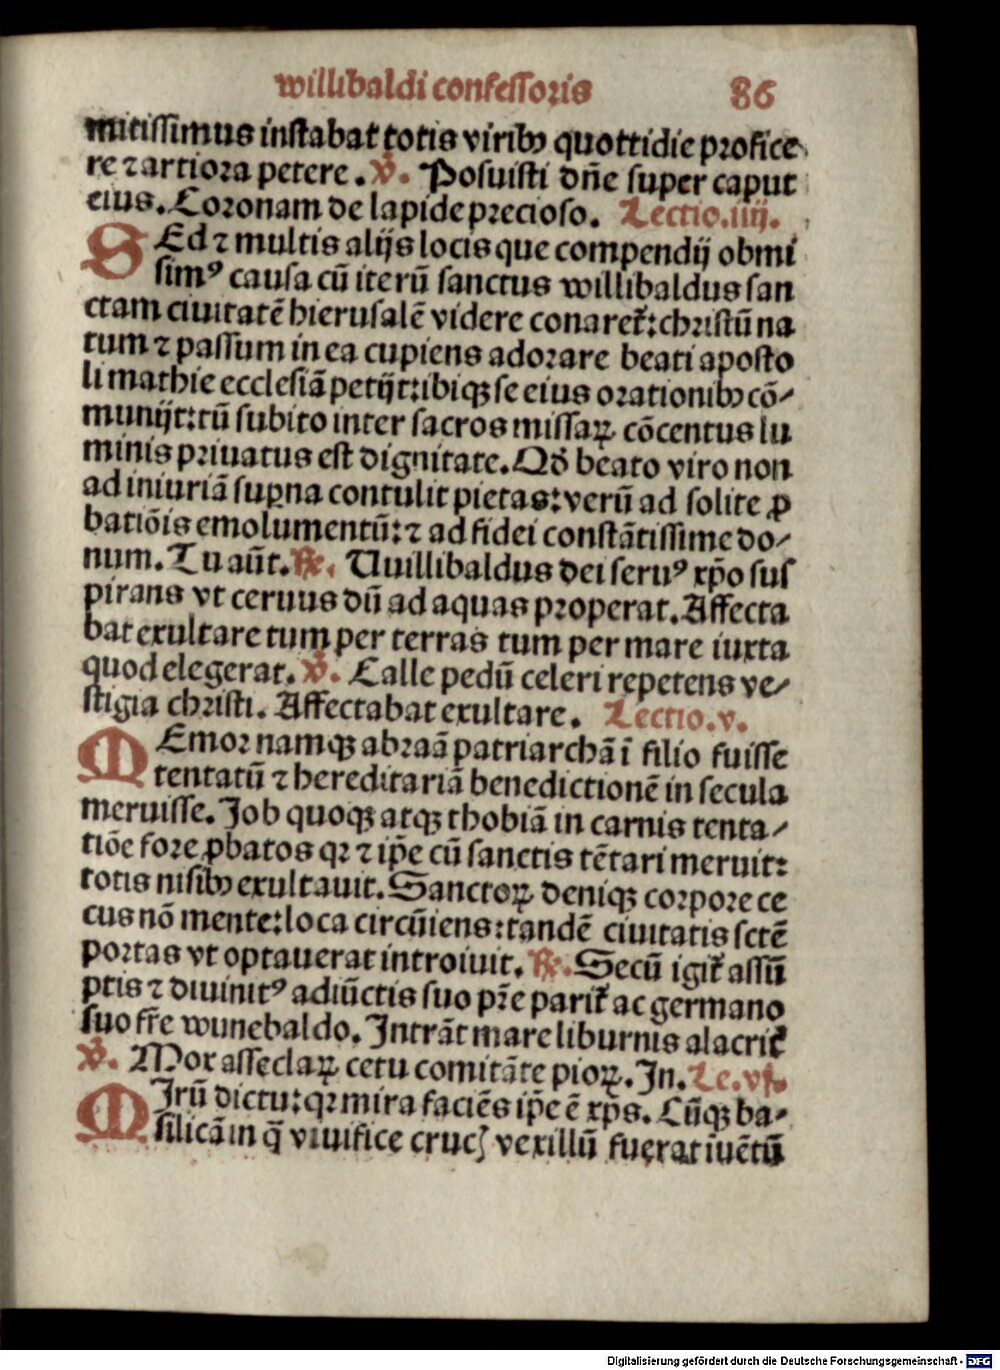 willibaldi confessoris 86
mitissimus instabat totis viribꝰ quottidie profice
re ⁊ artiora petere. ℣. Posuisti dñe super caput
eius. Coronam de lapide precioso. Lectio.iiij.
SEd ⁊ multis alijs locis que compendij obmi
simꝰ causa cū iterū sanctus willibaldus san
ctam ciuitatē hierusalē videre conaret̃: christū na
tum ⁊ passum in ea cupiens adorare beati aposto
li mathie ecclesiā petijt: ibiqꝫ se eius orationibꝰ cō-
munijt: tū subito inter sacros missaꝝ cōcentus lu
minis priuatus est dignitate. Qđ beato viro non
ad iniuriā suꝑna contulit pietas: verū ad solite ꝓ
batiōis emolumentū: ⁊ ad fidei constātissime do-
num. Tu aūt. ℟. Uuillibaldus dei seruꝰ xp̄o sus
pirans vt ceruus dū ad aquas properat. Affecta
bat exultare tum per terras tum per mare iuxta
quod elegerat. ℣. Calle pedū celeri repetens ve-
stigia christi. Affectabat exultare. Lectio.v.
MEmor namqꝫ abraā patriarchā ī filio fuisse
tentatū ⁊ hereditariā benedictionē in secula
meruisse. Job quoqꝫ atqꝫ thobiā in carnis tenta-
tiōe fore ꝓbatos qꝛ ⁊ ip̄e cū sanctis tētari meruit:
totis nisibꝰ exultauit. Sanctoꝝ deniqꝫ corpore ce
cus nō mente: loca circūiens: tandē ciuitatis sctē
portas vt optauerat introiuit. ℟. Secū igit̃ assū
ptis ⁊ diuinitꝰ adiūctis suo pr̄e parit̃ ac germano
suo fr̄e wunebaldo. Intrāt mare liburnis alacrit̃
℣. Mox asseclaꝝ cetu comitāte pioꝝ. In. Le.vj.
MIrū dictu: qꝛ mira faciēs ip̄e ē xp̄s. Cūqꝫ ba-
silicā in q̄ viuifice crucꝭ vexillū fuerat īuētū
Digitalisierung gefördert durch die Deutsche Forschungsgemeinschaft - DFG